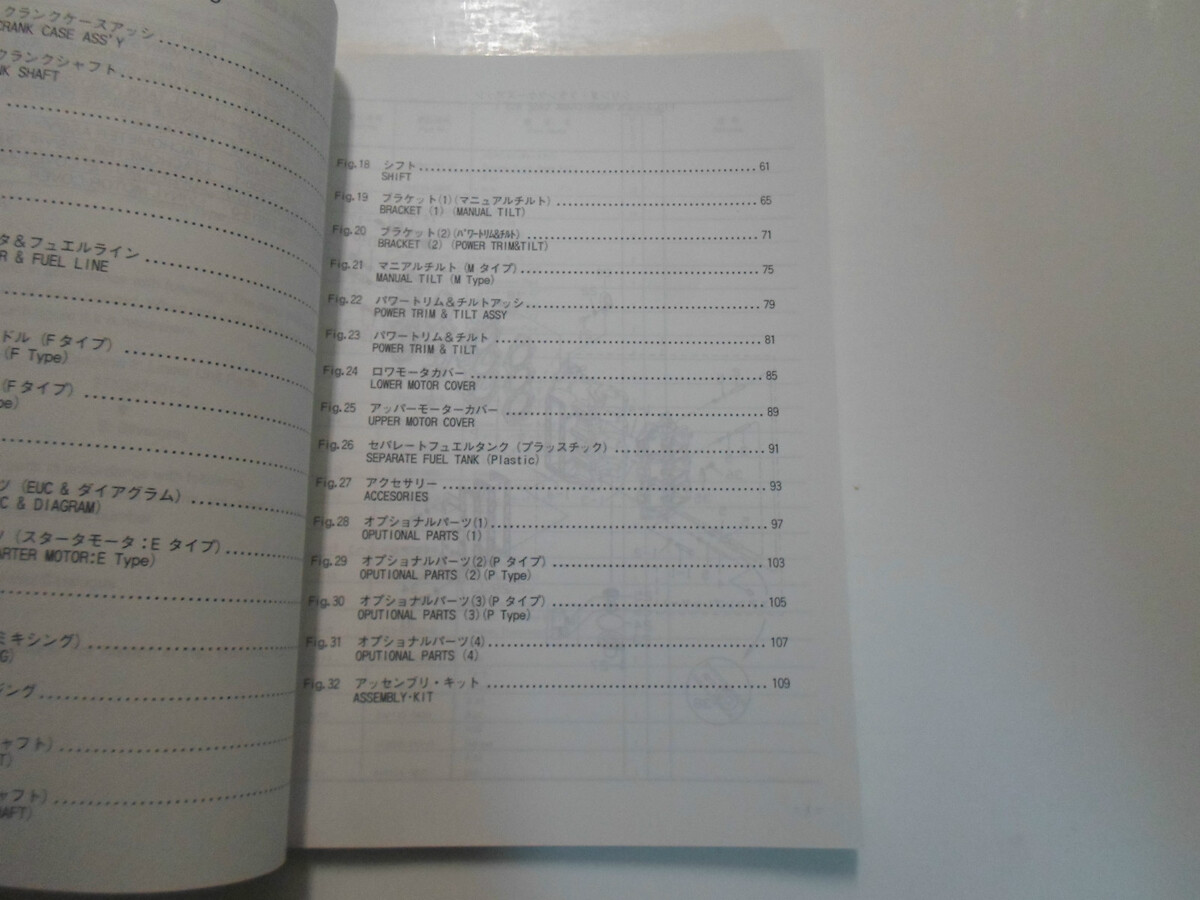 クランクケースアッシ
CRANK CASE ASS'Y
クランクシャフト
SHAFT
タ＆フュエルライン
R & FUEL LINE
ドル (Fタイプ)
(F Type)
(Fタイプ)
ツ (EUC & ダイアグラム)
C & DIAGRAM)
ツ (スタータモータ:E タイプ)
ARTER MOTOR:E Type)
ミキシング)
G)
ジング
ャフト)
T)
ャフト)
AFT)
Fig.18 シフト 61
SHIFT
Fig.19 ブラケット(1)(マニュアルチルト) 65
BRACKET (1) (MANUAL TILT)
Fig.20 ブラケット(2)(ﾊﾟﾜｰﾄﾘﾑ&ﾁﾙﾄ) 71
BRACKET (2) (POWER TRIM&TILT)
Fig.21 マニアルチルト (M タイプ) 75
MANUAL TILT (M Type)
Fig.22 パワートリム＆チルトアッシ 79
POWER TRIM & TILT ASSY
Fig.23 パワートリム＆チルト 81
POWER TRIM & TILT
Fig.24 ロワモータカバー 85
LOWER MOTOR COVER
Fig.25 アッパーモーターカバー 89
UPPER MOTOR COVER
Fig.26 セパレートフュエルタンク (プラッスチック) 91
SEPARATE FUEL TANK (Plastic)
Fig.27 アクセサリー 93
ACCESORIES
Fig.28 オプショナルパーツ(1) 97
OPUTIONAL PARTS (1)
Fig.29 オプショナルパーツ(2)(P タイプ) 103
OPUTIONAL PARTS (2)(P Type)
Fig.30 オプショナルパーツ(3)(P タイプ) 105
OPUTIONAL PARTS (3)(P Type)
Fig.31 オプショナルパーツ(4) 107
OPUTIONAL PARTS (4)
Fig.32 アッセンブリ・キット 109
ASSEMBLY・KIT